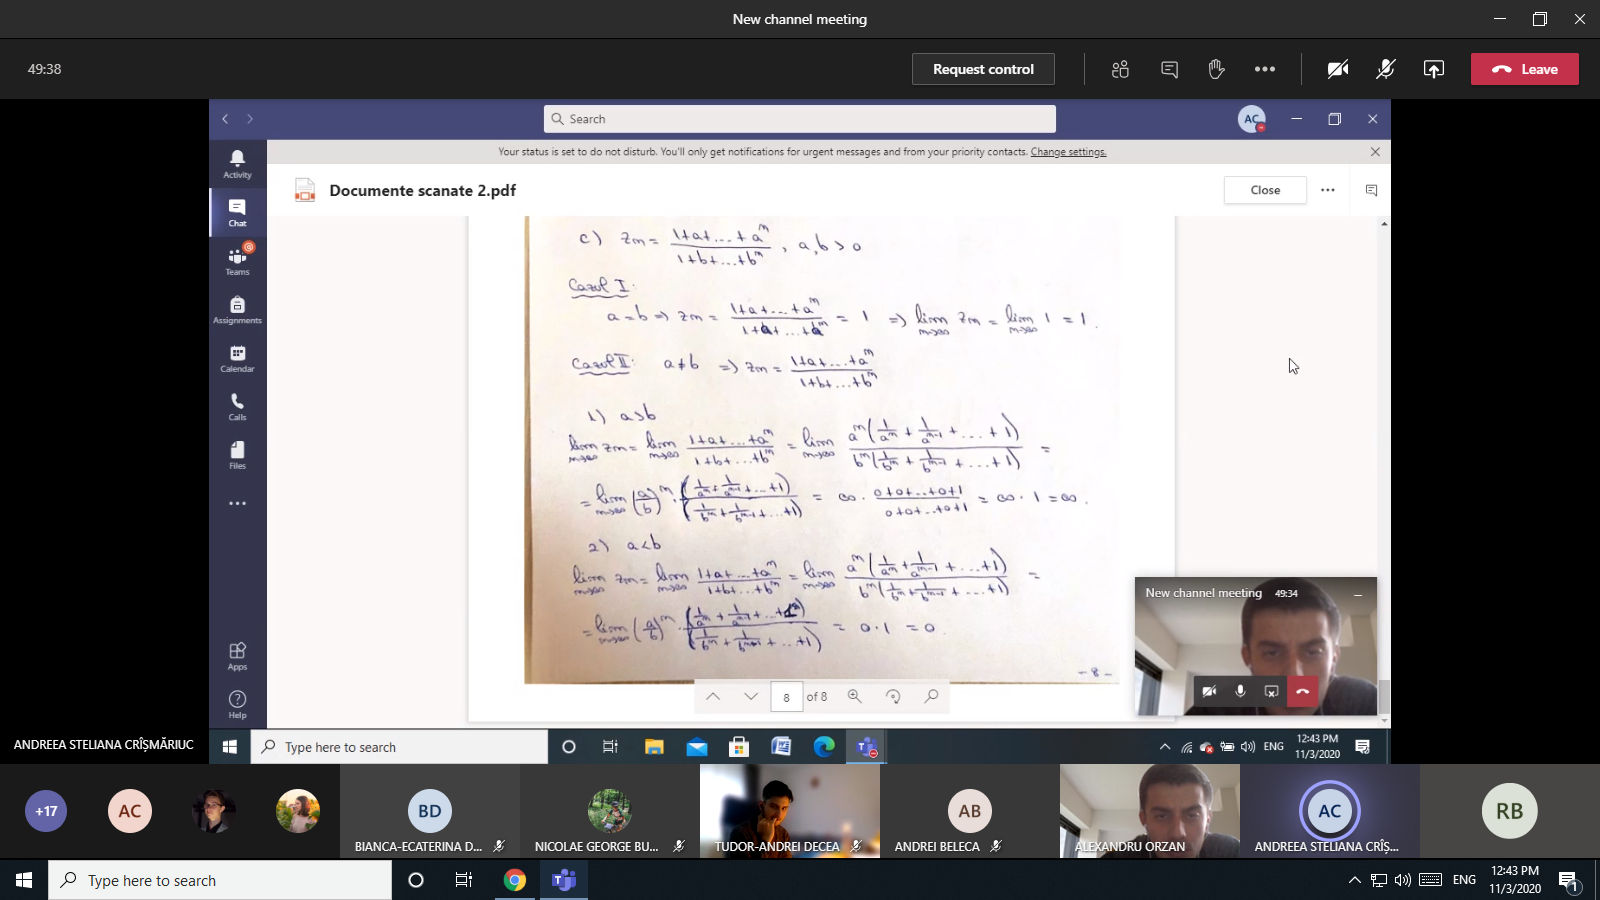 New channel meeting
49:38
Request control
Leave
Search
AC
Your status is set to do not disturb. You'll only get notifications for urgent messages and from your priority contacts. Change settings.
Activity
Chat
Teams
Assignments
Calendar
Calls
Files
Apps
Help
Documente scanate 2.pdf
Close
c) zm = (1+a+...+a^m)/(1+b+...+b^m), a,b > 0
Cazul I:
a=b => zm = (1+a+...+a^m)/(1+a+...+a^m) = 1 => lim m→∞ zm = lim m→∞ 1 = 1.
Cazul II: a≠b => zm = (1+a+...+a^m)/(1+b+...+b^m)
1) a>b
lim m→∞ zm = lim m→∞ (1+a+...+a^m)/(1+b+...+b^m) = lim m→∞ a^m(1/a^m + 1/a^m-1 + ... + 1)/b^m(1/b^m + 1/b^m-1 + ... + 1) =
= lim m→∞ (a/b)^m · (1/a^m + 1/a^m-1 + ... + 1)/(1/b^m + 1/b^m-1 + ... + 1) = ∞ · (0+0+...+0+1)/(0+0+...+0+1) = ∞ · 1 = ∞.
2) a<b
lim m→∞ zm = lim m→∞ (1+a+...+a^m)/(1+b+...+b^m) = lim m→∞ a^m(1/a^m + 1/a^m-1 + ... + 1)/b^m(1/b^m + 1/b^m-1 + ... + 1) =
= lim m→∞ (a/b)^m · (1/a^m + 1/a^m-1 + ... + 1)/(1/b^m + 1/b^m-1 + ... + 1) = 0·1 = 0.
-8-
8 of 8
New channel meeting 49:34
ANDREEA STELIANA CRÎȘMĂRIUC
Type here to search
ENG
12:43 PM
11/3/2020
+17
AC
BD
BIANCA-ECATERINA D...
NICOLAE GEORGE BU...
TUDOR-ANDREI DECEA
AB
ANDREI BELECA
ALEXANDRU ORZAN
AC
ANDREEA STELIANA CRÎȘ...
RB
Type here to search
ENG
12:43 PM
11/3/2020
1